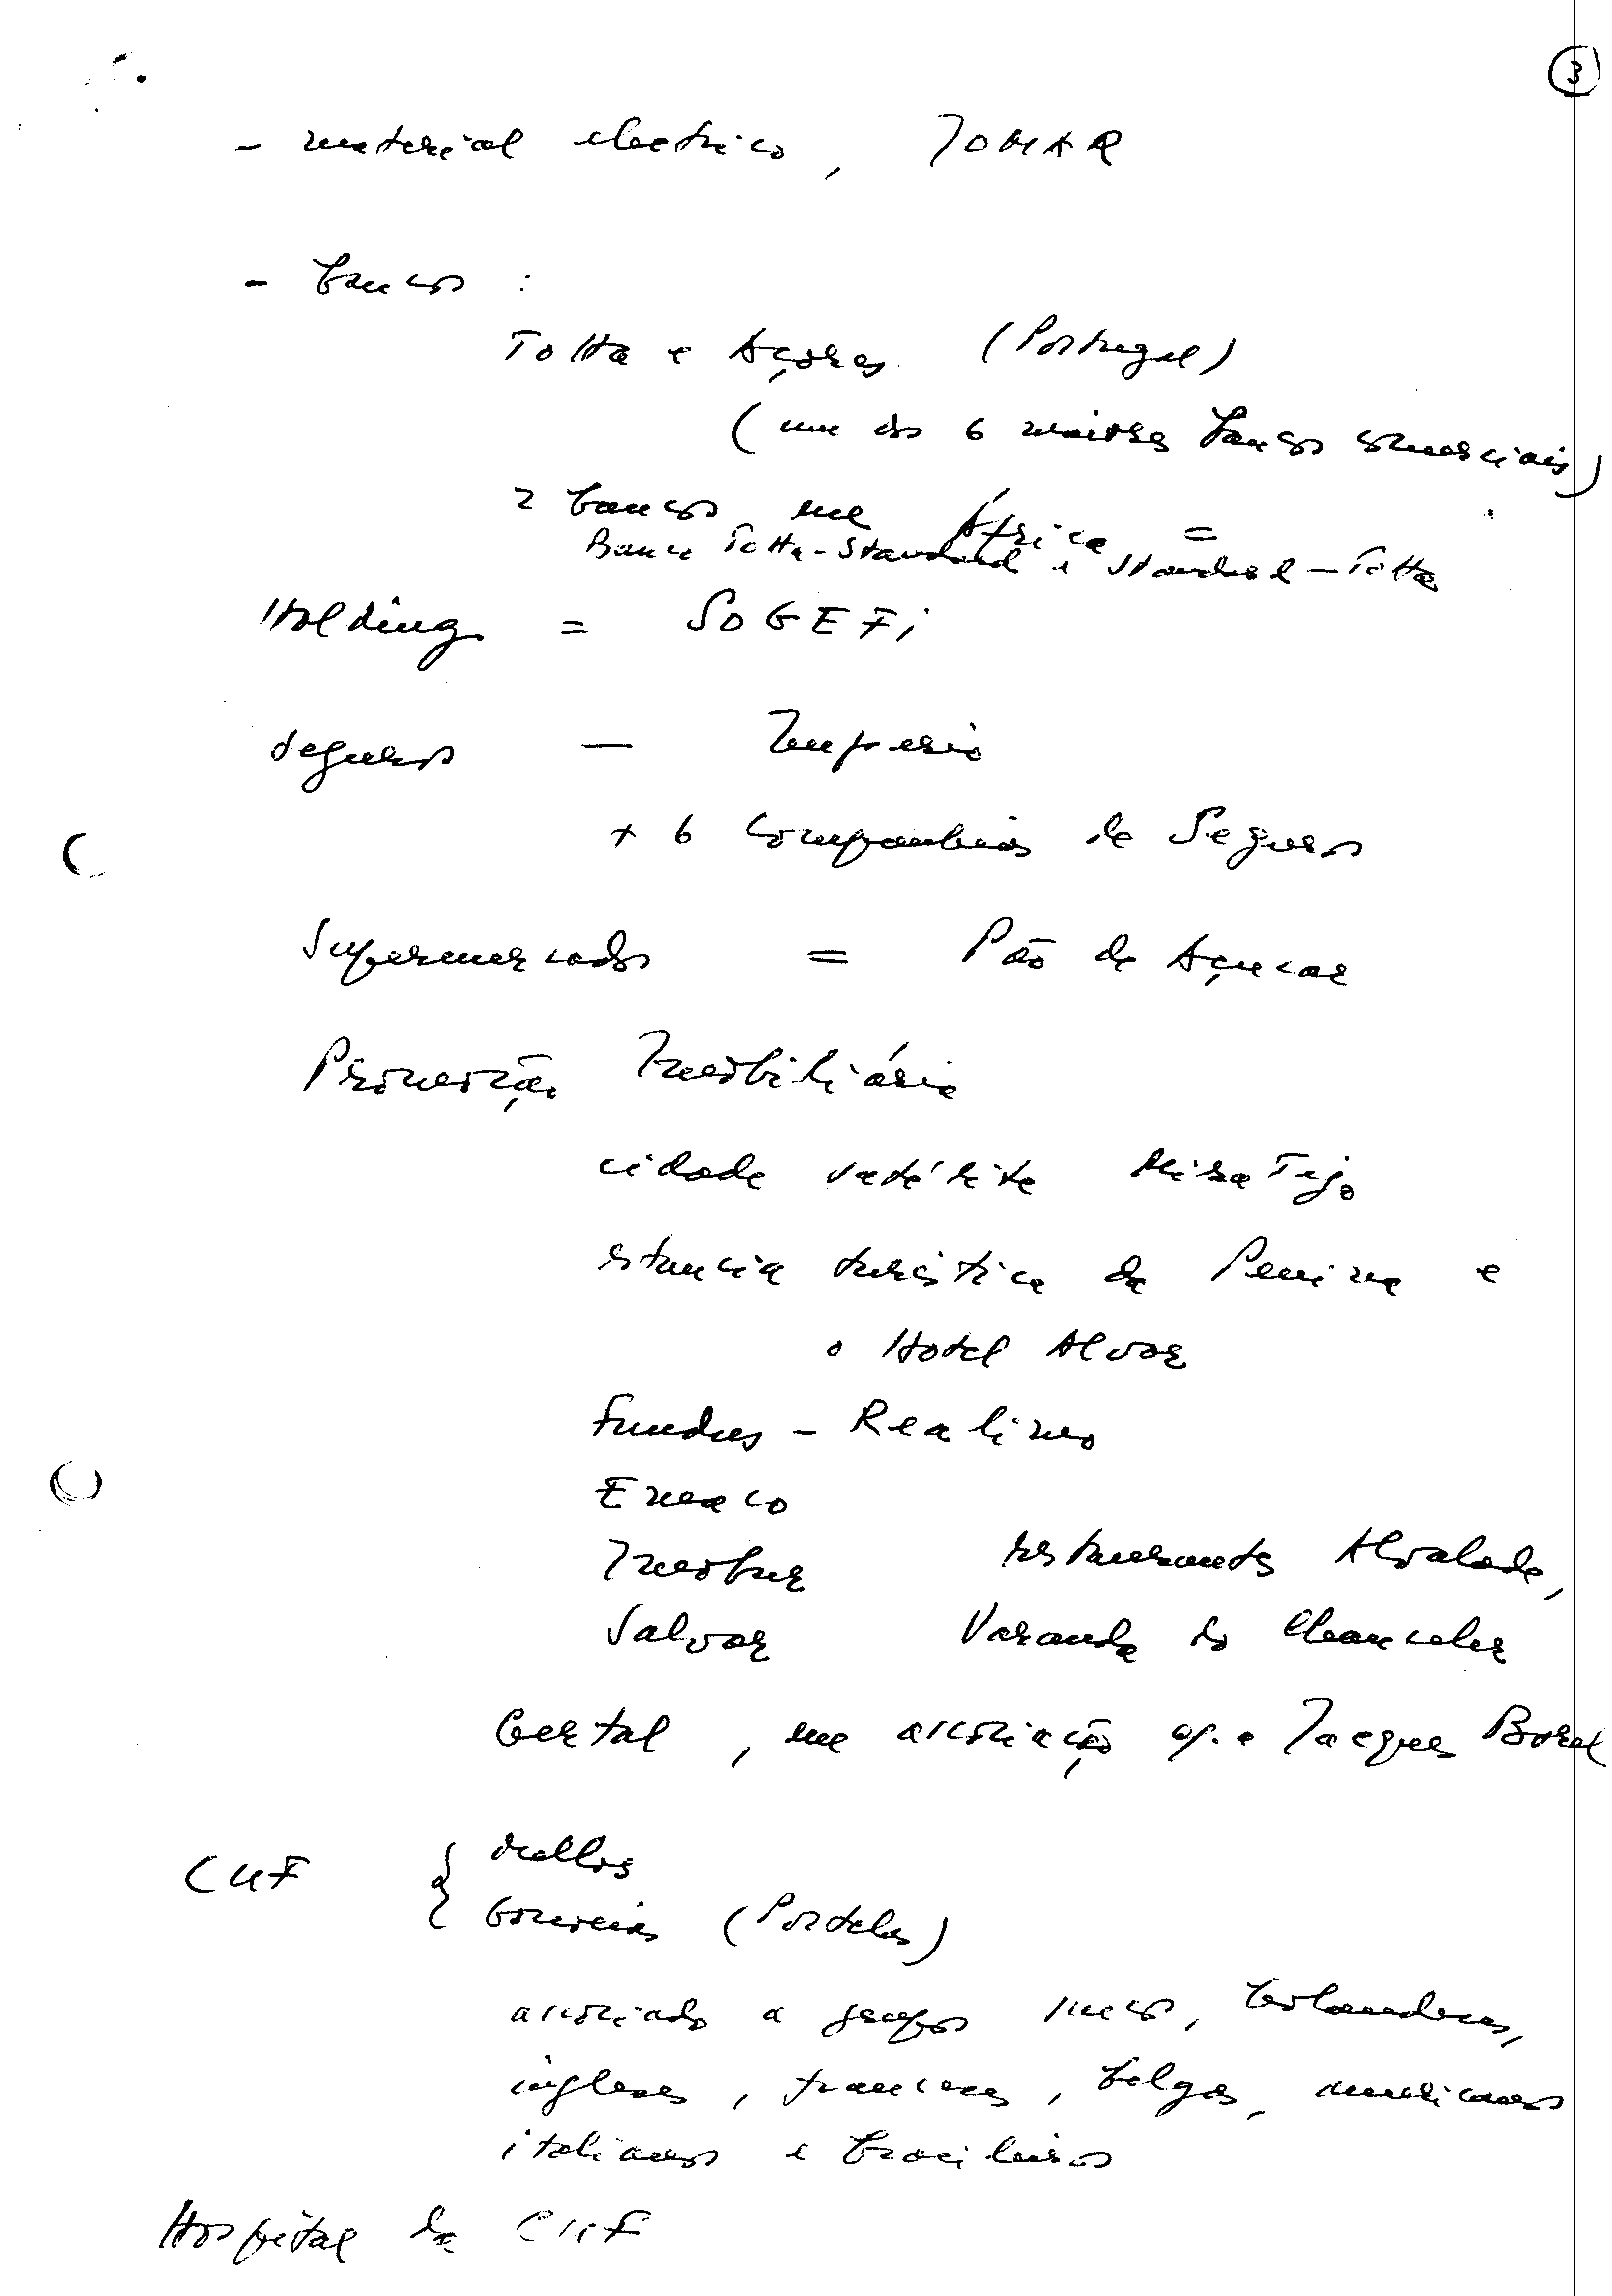 3
- material electrico, TOMAR
- bancos :
Totta e Açores (Portugal)
(um dos 6 maiores bancos comerciais)
2 bancos na África =
Banco Totta-Standard e Standard-Totta
Holding = SOGEFI
Seguros — Imperio
+ 6 Companhias de Seguros
Supermercados = Pão de Açucar
Promoção Imobiliária
cidade satélite MiraTejo
estancia turística da Penina e
o Hotel Alvor
Fundus - Realimo
Emaco
Imobur restaurantes Alvalade,
Salvor Varanda do Chanceler
Gertal, na associação c/ a Jacques Borel
CUF { Mellos
Gouveias (Portelas)
associado a grupos suecos, holandeses,
ingleses, franceses, belgas, americanos
italianos e brasileiros
Hospital da CUF